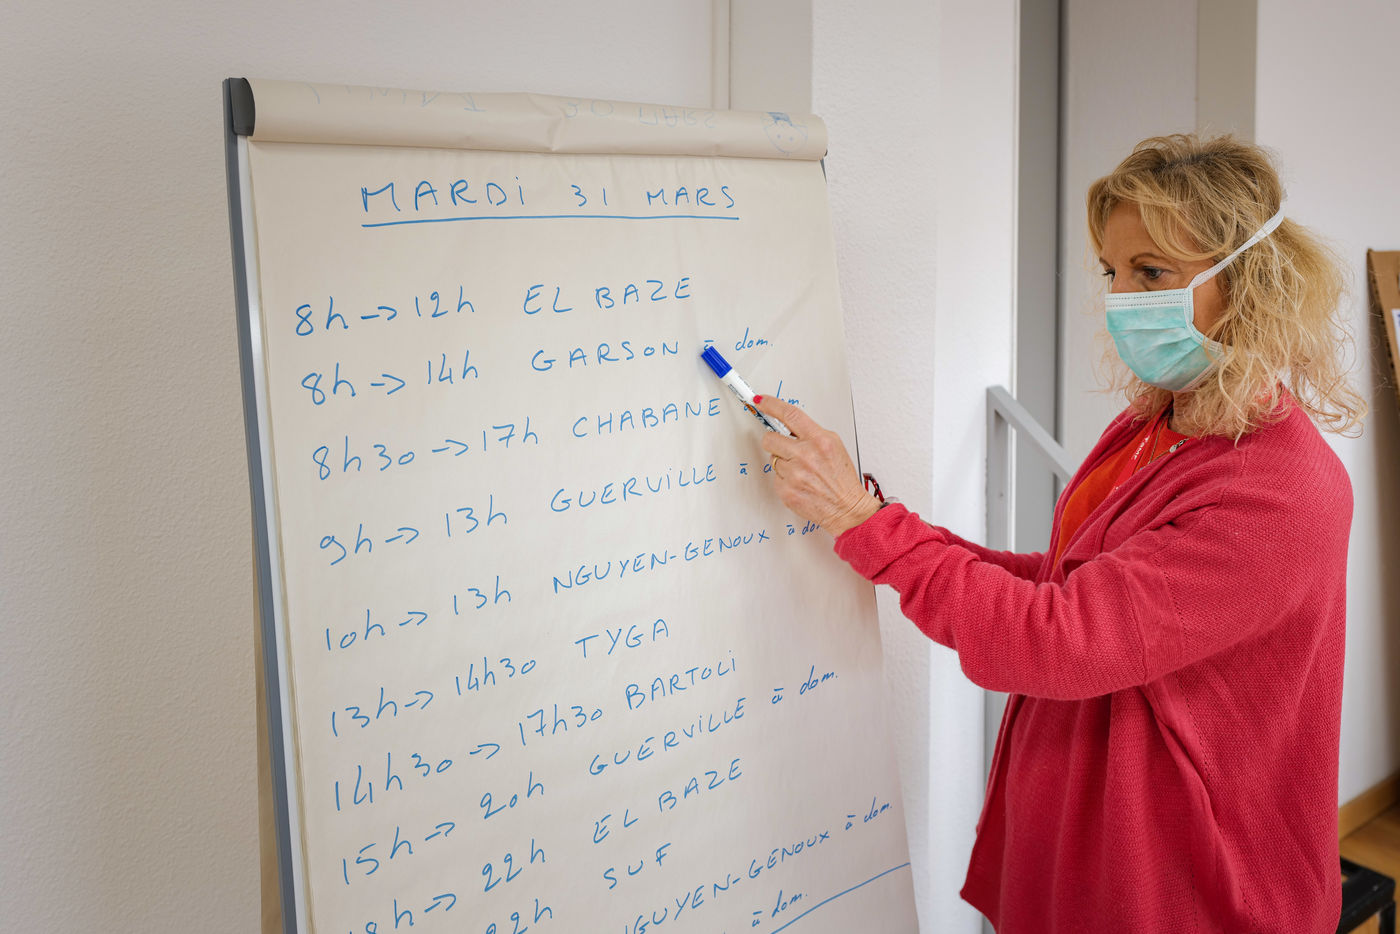 MARDI 31 MARS
8h → 12h EL BAZE
8h → 14h GARSON à dom.
8h30 → 17h CHABANE dom.
9h → 13h GUERVILLE à
10h → 13h NGUYEN-GENOUX à dom
13h → 14h30 TYGA
14h30 → 17h30 BARTOLI
15h → 20h GUERVILLE à dom.
18h → 22h EL BAZE
22h SUF
NGUYEN-GENOUX à dom.
à dom.